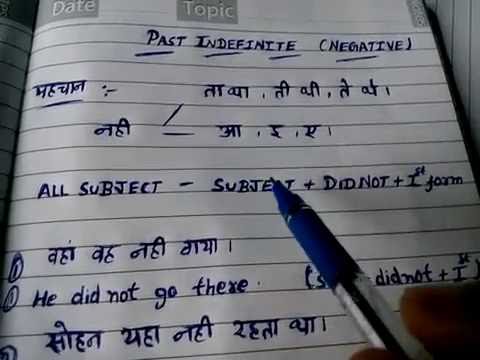 Date Topic
PAST INDEFINITE (NEGATIVE)
पहचान :- ता था , ती थी , ते थे ।
नही आ , इ , ए ।
ALL SUBJECT - SUBJECT + DID NOT + Ist form
① वहां वह नही गया ।
① He did not go there. didnot + Ist)
सोहन यहा नही रहता था ।